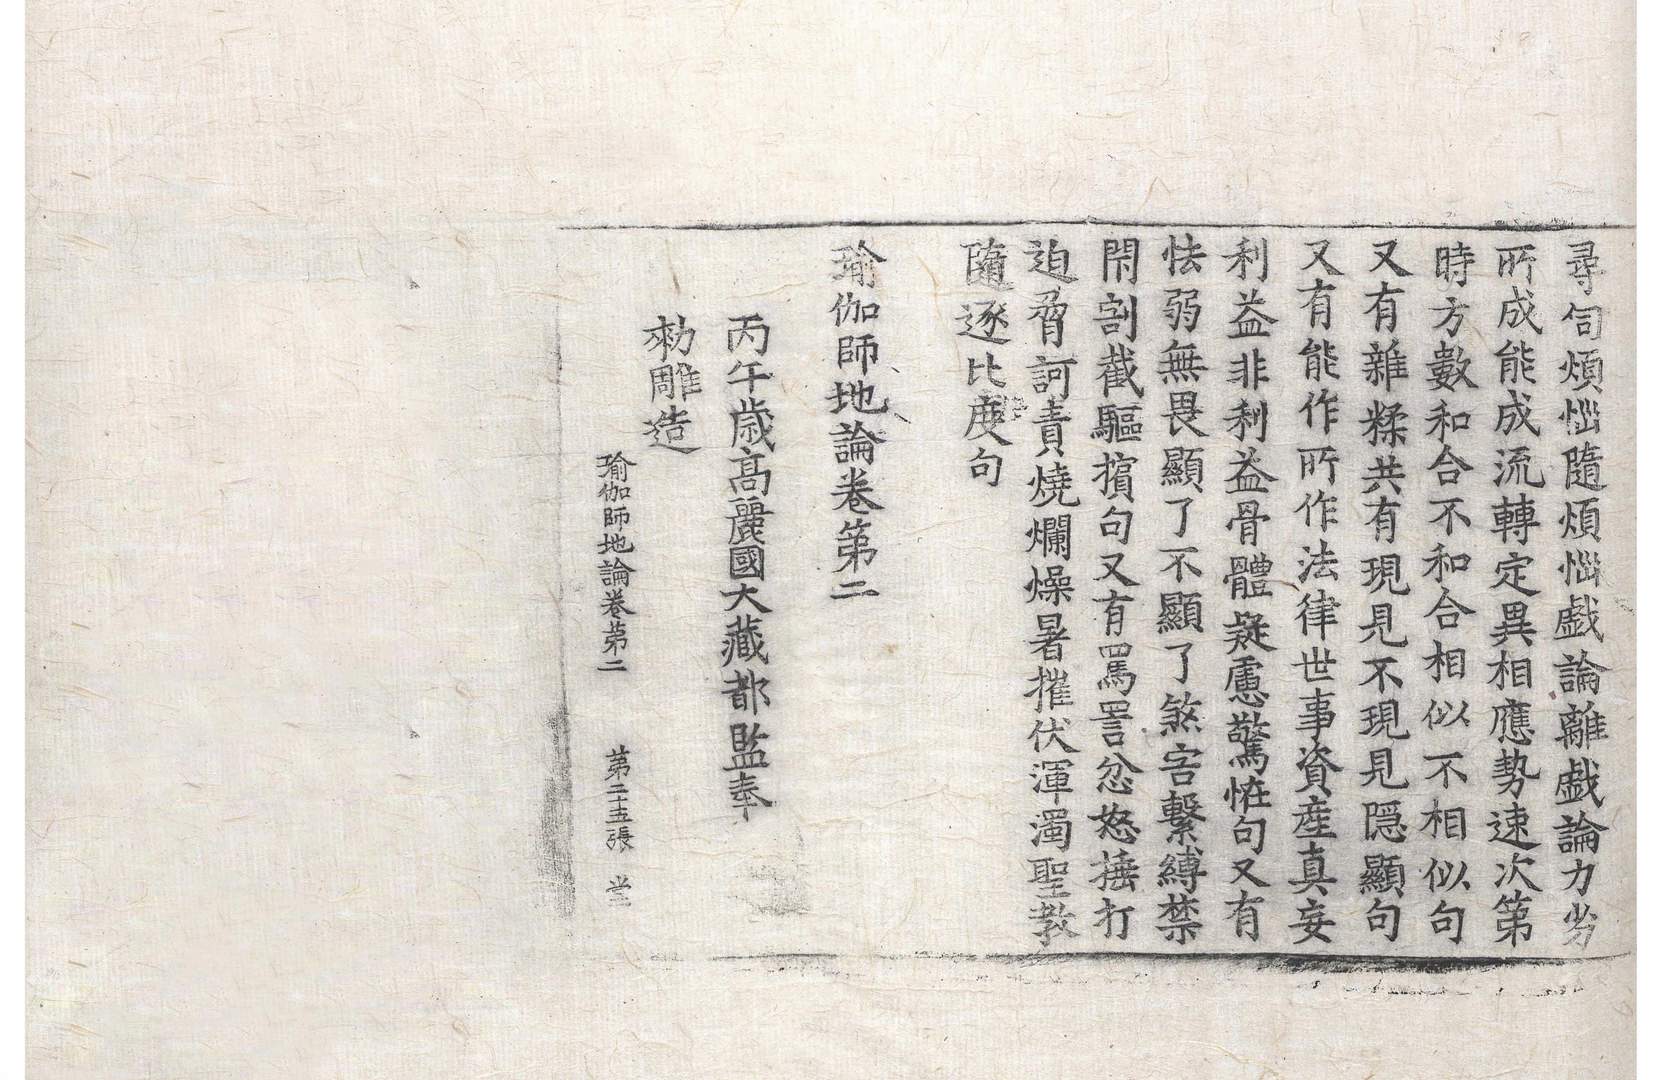 尋伺煩惱隨煩惱戲論離戲論力劣
所成能成流轉定異相應勢速次第
時方數和合不和合相似不相似句
又有雜糅共有現見不現見隱顯句
又有能作所作法律世事資産真妄
利益非利益骨體疑慮驚恠句又有
怯弱無畏顯了不顯了煞害繫縛禁
閇割截驅擯句又有罵詈忿怒捶打
迫脅訶責燒爛燥暑摧伏渾濁聖教
隨逐比度句
瑜伽師地論卷第二
丙午歲高麗國大藏都監奉
勑雕造
瑜伽師地論卷第二 第二十五張